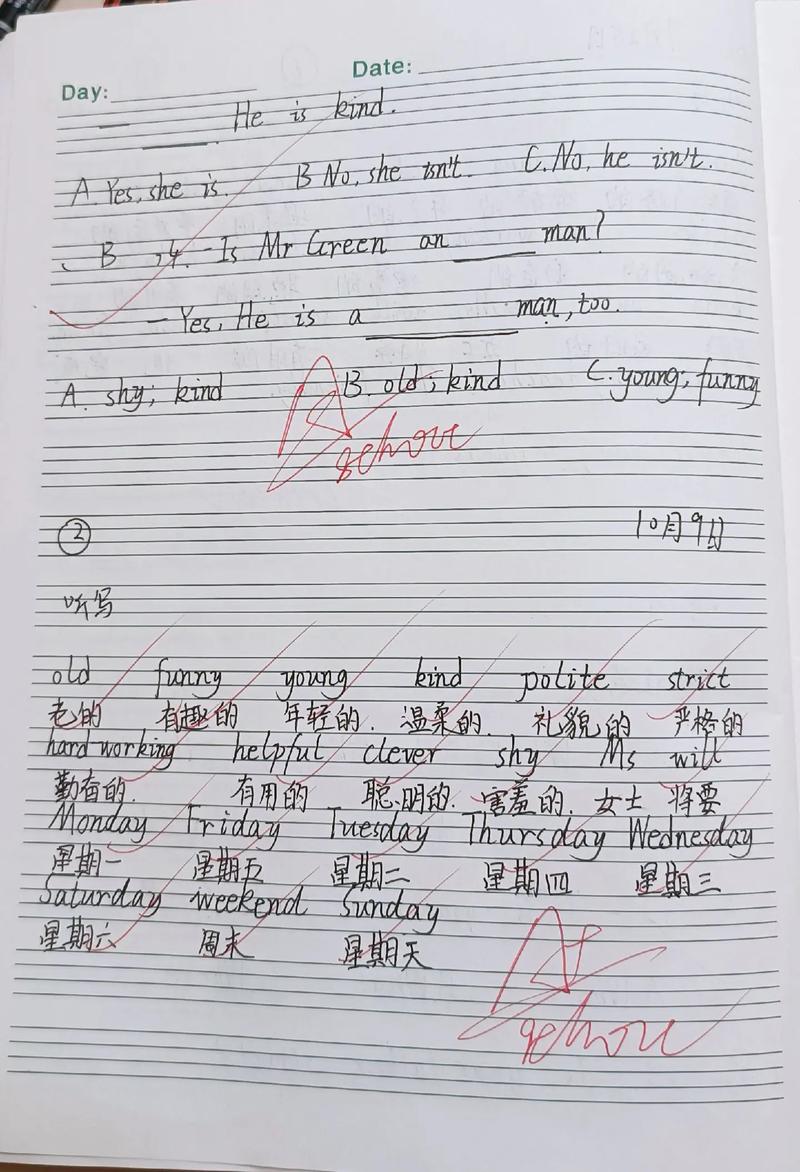 Day: Date:
He is kind.
A. Yes, she is. B No, she isn't. C. No, he isn't.
、 B 24. -Is Mr Green an man?
-Yes, He is a man, too.
A. shy; kind B. old; kind C. young; funny
A
② 10月9日
听写
old funny young kind polite strict
老的 有趣的 年轻的. 温柔的. 礼貌的 严格的
hard working helpful clever shy Ms will
勤奋的. 有用的 聪明的. 害羞的. 女士 将要
Monday Friday Tuesday Thursday Wednesday
星期一 星期五 星期二 星期四 星期三
Saturday weekend Sunday
星期六 周末 星期天
A+